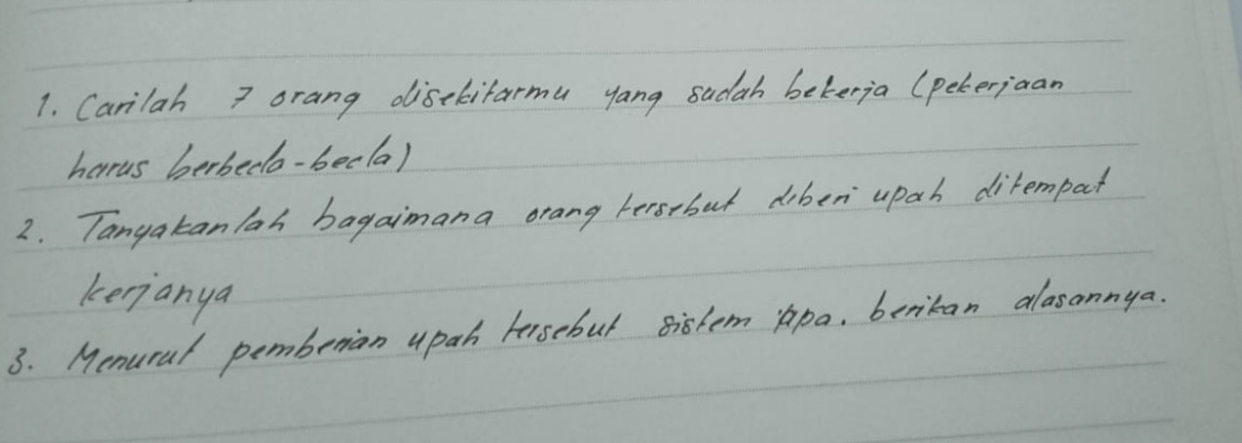 1. Carilah 7 orang disekitarmu yang sudah bekerja (pekerjaan
harus berbeda-beda)
2. Tanyakanlah bagaimana orang tersebut diberi upah ditempat
kerjanya
3. Menurut pemberian upah tersebut sistem apa. berikan alasannya.